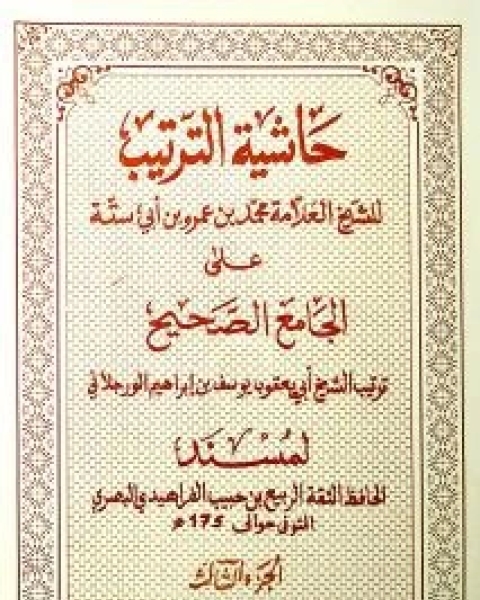 حاشية الترتيب
للشيخ العلامة محمد بن عمرو بن أبي ستة
على
الجامع الصحيح
ترتيب الشيخ أبي يعقوب يوسف بن إبراهيم الورجلاني
لمسند
الحافظ الثقة الربيع بن حبيب الفراهيدي البصري
المتوفى حوالى 175 ه
الجزء الثالث